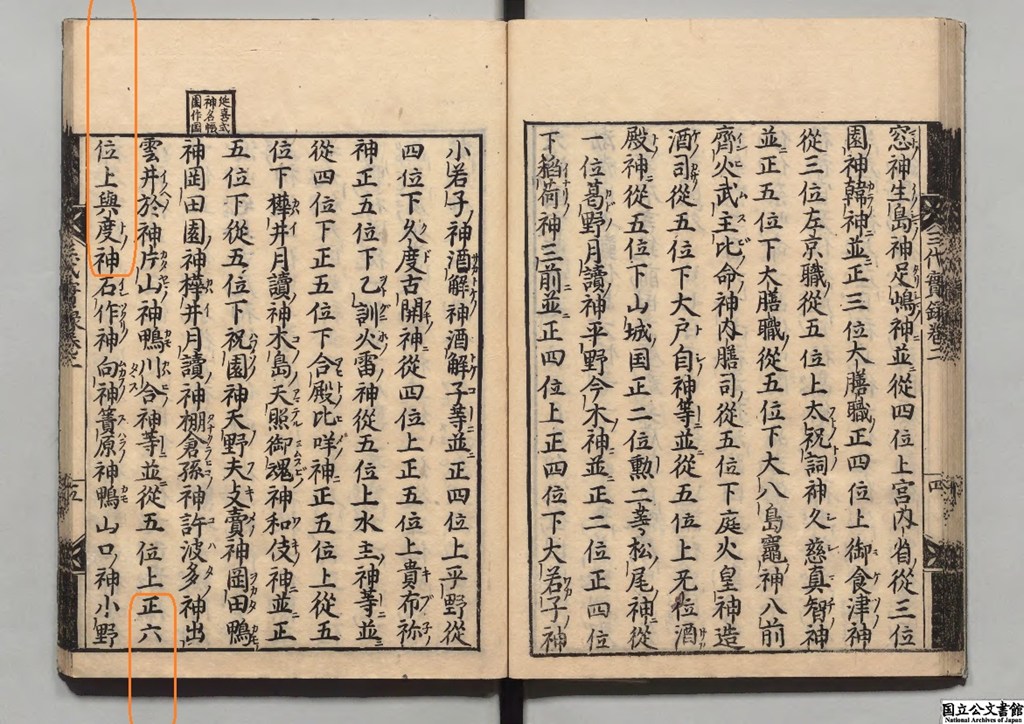 三代實録巻二
四
窓神生島神足嶋神並從四位上宮内省從三位
園神韓神並正三位大膳職正四位上御食津神
從三位左京職從五位上太祝詞神久慈真智神
並正五位下大膳職從五位下大八島竈神八前
齊火武主比命神内膳司從五位下庭火皇神造
酒司從五位下大戸自神等並從五位上无位酒
殿神從五位下山城国正二位勲二等松尾神從
一位葛野月讀神平野今木神並正二位正四位
下稻荷神三前並正四位上正四位下大若子神
小若子神酒解神酒解子等並正四位上平野從
四位下久度古開神從四位上正五位上貴布祢
神正五位下乙訓火雷神從五位上水主神等並
從四位下正五位下合殿比咩神正五位上從五
位下樺井月讀神木島天照御魂神和伎神並正
五位下從五位下祝園神天野夫支賣神岡田鴨
延喜式
神名帳
園作国
神岡田園神樺井月讀神棚倉孫神許波多神出
雲井於神片山神鴨川合神等並從五位上正六
位上與度神石作神向神簀原神鴨山口神小野
国立公文書館
National Archives of Japan